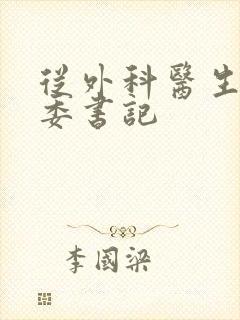 從外科醫生
委書記
李國梁